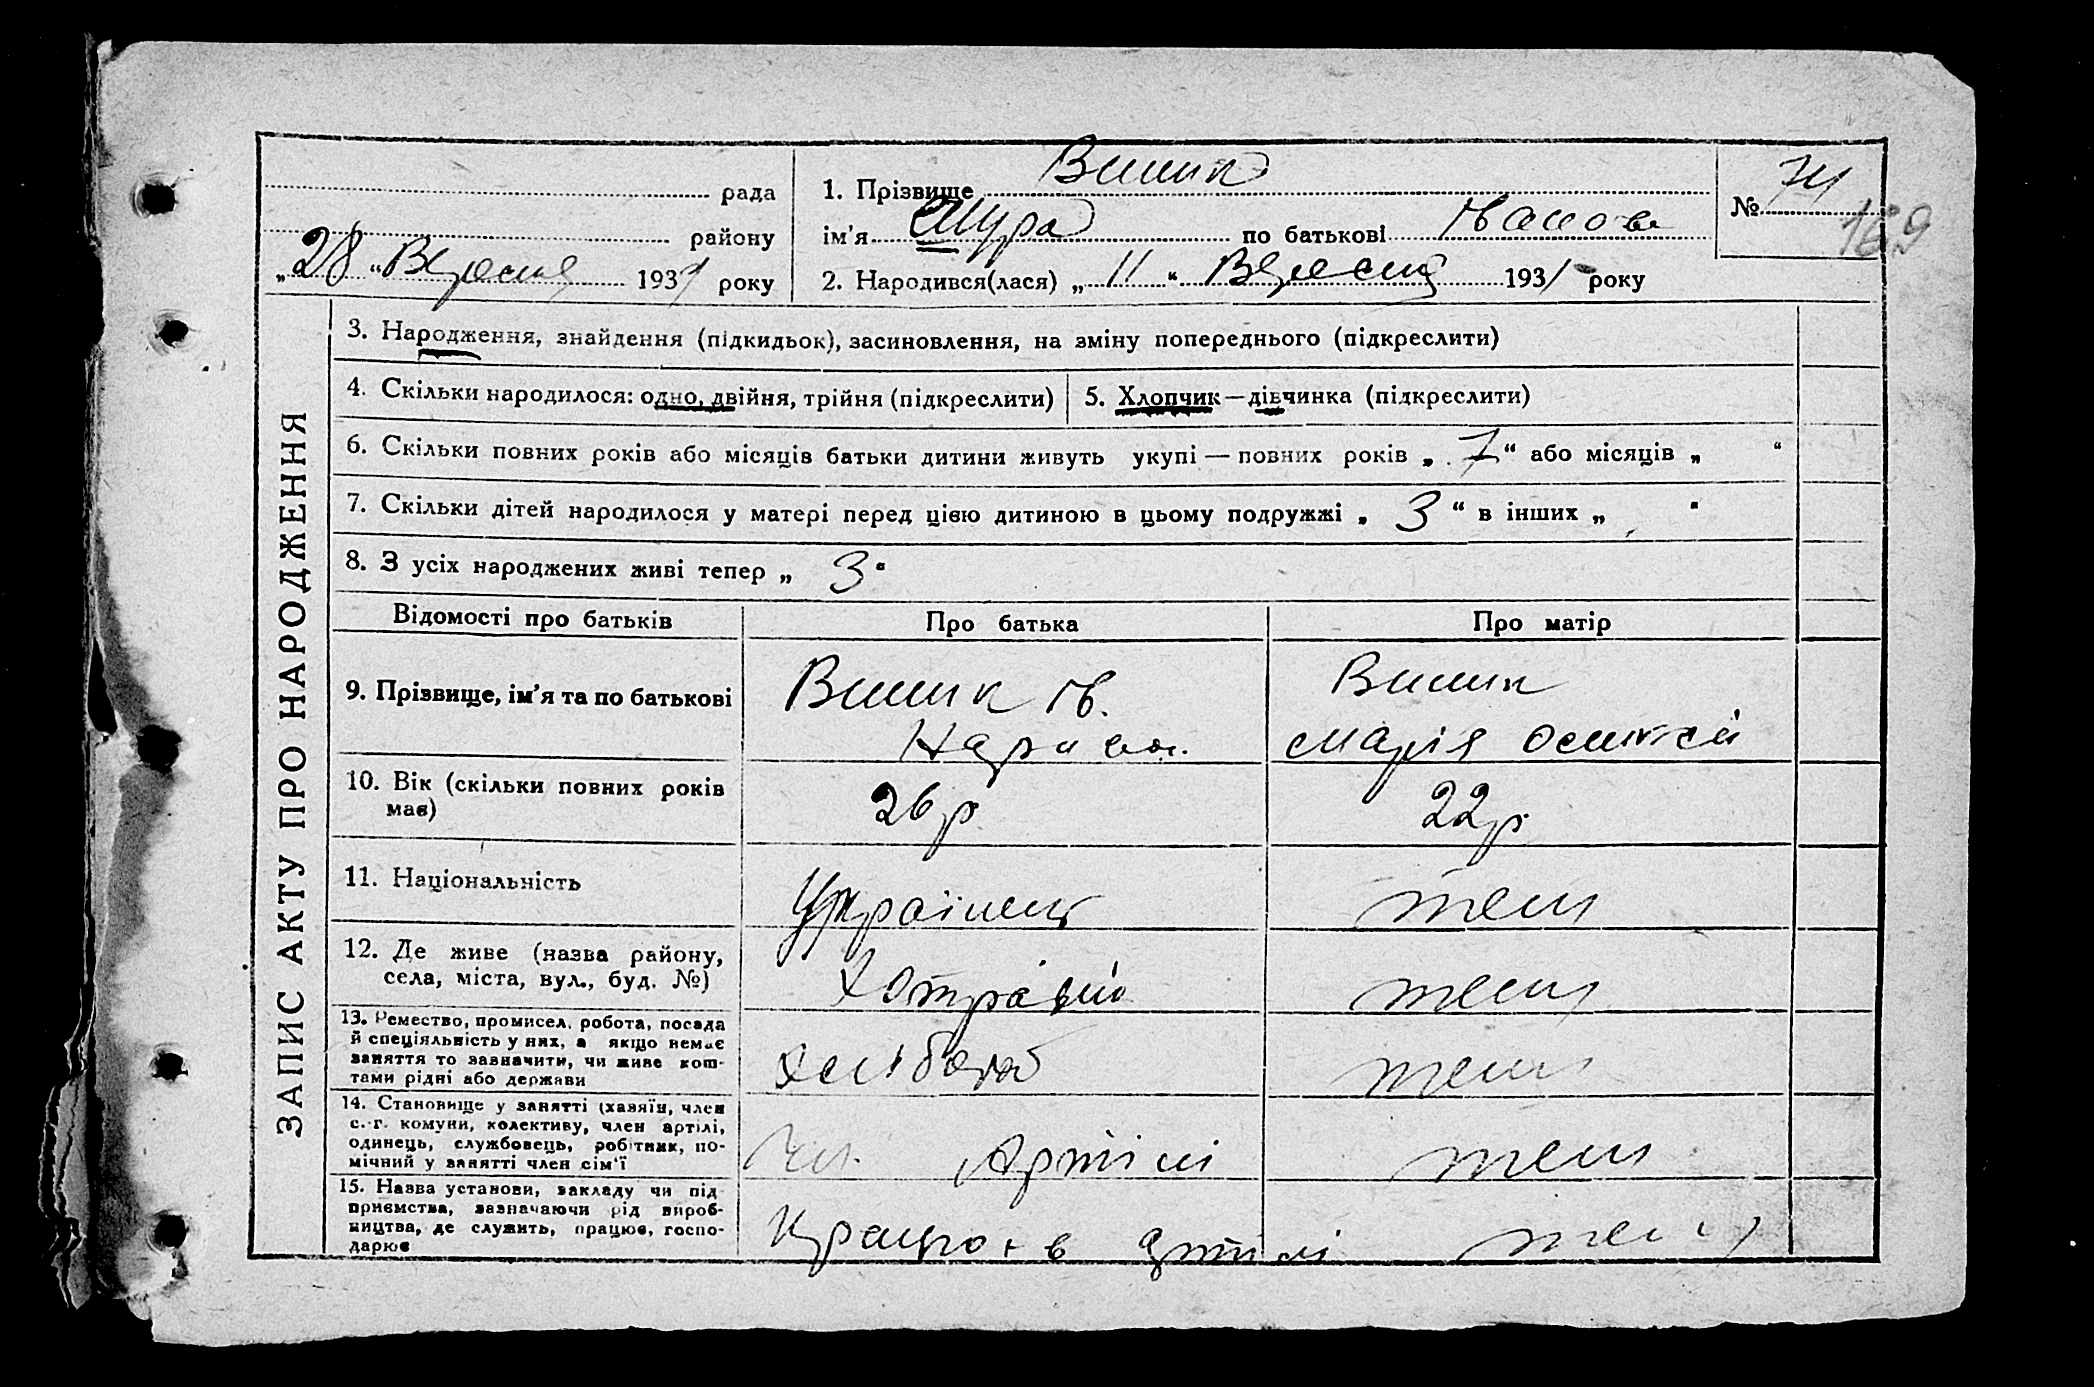 рада
району
„28“ Вересня 1931 року
1. Прізвище Виник
ім'я Шура по батькові Іванов
2. Народився(лася) „11“ Вересня 1931 року
№ 74
169
ЗАПИС АКТУ ПРО НАРОДЖЕННЯ
3. Народження, знайдення (підкидьок), засиновлення, на зміну попереднього (підкреслити)
4. Скільки народилося: одно, двійня, трійня (підкреслити)
5. Хлопчик—дівчинка (підкреслити)
6. Скільки повних років або місяців батьки дитини живуть укупі — повних років „ 7 “ або місяців „ “
7. Скільки дітей народилося у матері перед цією дитиною в цьому подружжі „ 3 “ в інших „ “
8. З усіх народжених живі тепер „ 3 “
Відомості про батьків Про батька Про матір
9. Прізвище, ім'я та по батькові
Виник Ів.
Виник
Марія
10. Вік (скільки повних років
має)
26 р
22 р.
11. Національність
Українець
теж
12. Де живе (назва району,
села, міста, вул., буд. №)
теж
13. Ремество, промисел, робота, посада
й спеціяльність у них, а якщо немає
заняття то зазначити, чи живе кош-
тами рідні або держави
Хлібороб
теж
14. Становище у занятті (хазяїн, член
с.-г. комуни, колективу, член артілі,
одинець, службовець, робітник, по-
мічний у занятті член сім'ї
Чл. Артілі
теж
15. Назва установи, закладу чи під
приємства, зазначаючи рід вироб-
ництва, де служить, працює, госпо-
дарює
Працює в артілі
теж